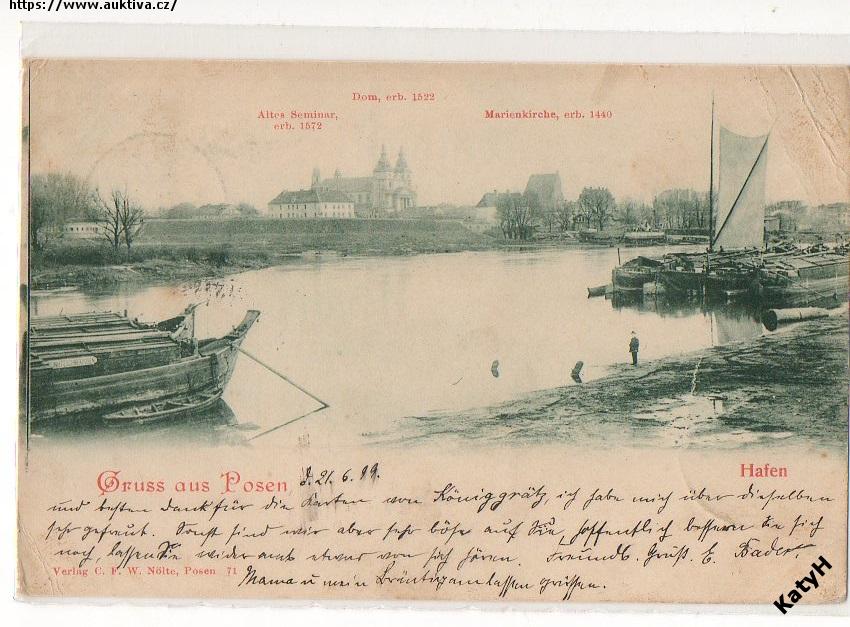 https://www.auktiva.cz/
Dom, erb. 1522
Altes Seminar,
erb. 1572
Marienkirche, erb. 1440
Hafen
Gruss aus Posen d. 21. 6. 99.
und besten Dank für die Karten von Königgrätz, ich habe mich über dieselben
sehr gefreut. Sonst sind wir aber sehr böse auf Sie hoffentlich bessern Sie sich
noch, lassen Sie wider mal etwas von sich hören. Freundl. Gruß. E. Bader
Verlag C. F. W. Nölte, Posen 71
Mama u mein Bräutigam lassen grüssen.
KatyH